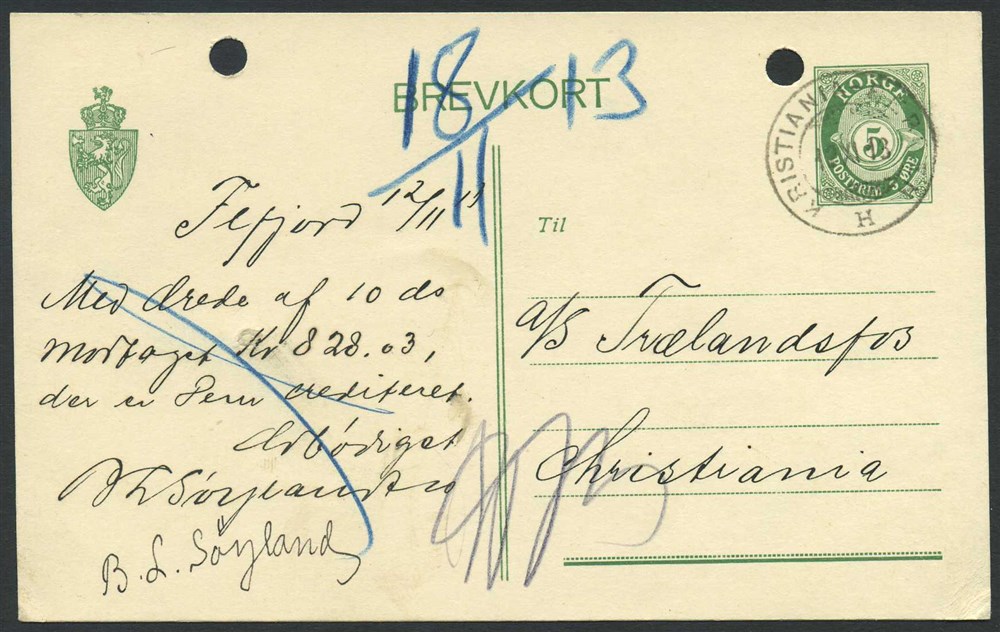 BREVKORT
18/11 - 13
NORGE
5
POSTFRIM. 5 ØRE
KRISTIANIA
H
Flefjord 12/11 13
Med Brede af 10 ds
modtaget Kr 828.03,
der er Dem crediteret.
Ærbødigst
B. L. Søyland
Til
A/S Trælandsfos
Christiania